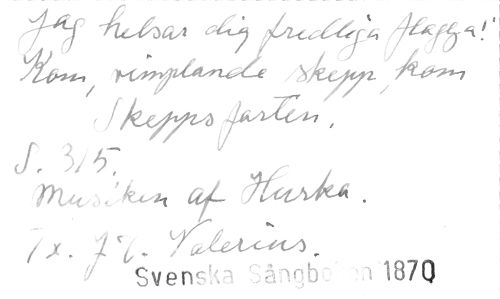 Jag helsar dig fredliga flagga!
Kom, vimplande skepp, kom
Skeppsfarten.
S. 315.
Musiken af Hurka.
Tx. J. D. Valerius.
Svenska Sångboken 1870